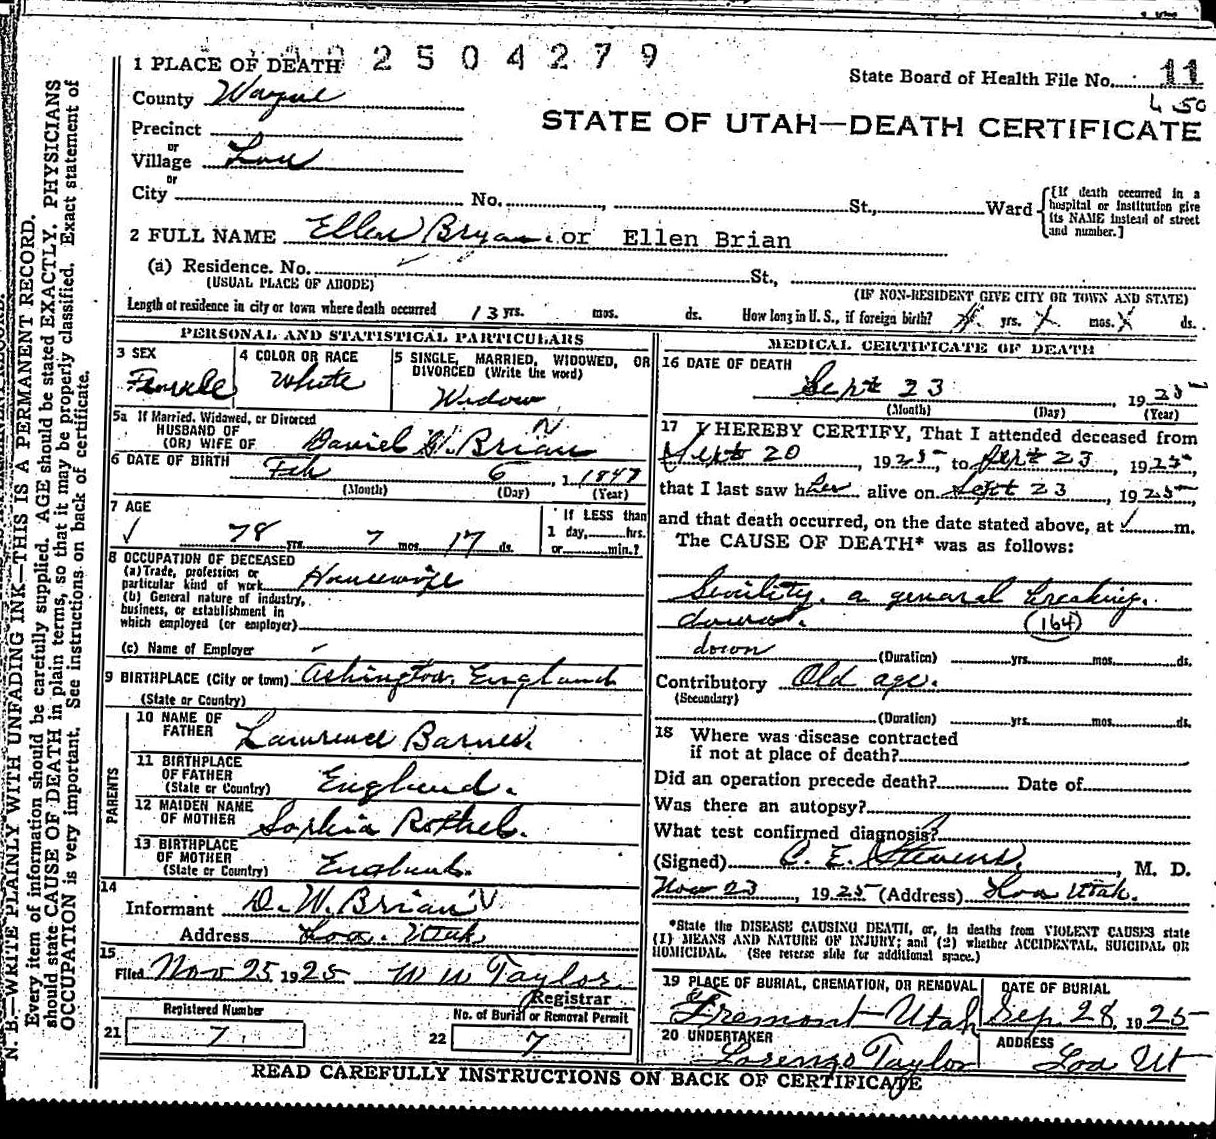 2504279
1 PLACE OF DEATH
State Board of Health File No. 11
County Wayne
4 50
STATE OF UTAH—DEATH CERTIFICATE
Precinct
or
Village Loa
or
City No. , St., Ward
{If death occurred in a
hospital or institution give
its NAME instead of street
and number.]
2 FULL NAME Ellen Bryan or Ellen Brian
(a) Residence. No. St.,
(USUAL PLACE OF ABODE)
(IF NON-RESIDENT GIVE CITY OR TOWN AND STATE)
Length of residence in city or town where death occurred 13 yrs. mos. ds. How long in U. S., if foreign birth? yrs. X mos. X ds.
PERSONAL AND STATISTICAL PARTICULARS
3 SEX
Female
4 COLOR OR RACE
White
5 SINGLE, MARRIED, WIDOWED, OR
DIVORCED (Write the word)
Widow
5a If Married, Widowed, or Divorced
HUSBAND OF
(OR) WIFE OF Daniel G. Brian
6 DATE OF BIRTH Feb 6, 1847
(Month) (Day) (Year)
7 AGE
78 yrs. 7 mos. 17 ds.
If LESS than
1 day, hrs.
or min.?
8 OCCUPATION OF DECEASED
(a) Trade, profession or
particular kind of work Housewife
(b) General nature of industry,
business, or establishment in
which employed (or employer)
(c) Name of Employer
9 BIRTHPLACE (City or town) Ashington, England
(State or Country)
PARENTS
10 NAME OF
FATHER Lawrence Barnes.
11 BIRTHPLACE
OF FATHER
(State or Country) England.
12 MAIDEN NAME
OF MOTHER Sophia Rothel.
13 BIRTHPLACE
OF MOTHER
(State or Country) England.
14
Informant D. W. Brian
Address Loa. Utah
15
Filed Nov 25 1925 W W Taylor
Registrar
Registered Number
21 7
No. of Burial or Removal Permit
22 7
MEDICAL CERTIFICATE OF DEATH
16 DATE OF DEATH
Sept 23, 1925
(Month) (Day) (Year)
17 I HEREBY CERTIFY, That I attended deceased from
Sept 20, 1925, to Sept 23, 1925,
that I last saw her alive on Sept 23, 1925,
and that death occurred, on the date stated above, at m.
The CAUSE OF DEATH* was as follows:
Senility. a general breaking.
down.
(164)
down (Duration) yrs. mos. ds.
Contributory Old age.
(Secondary)
(Duration) yrs. mos. ds.
18 Where was disease contracted
if not at place of death?
Did an operation precede death? Date of
Was there an autopsy?
What test confirmed diagnosis?
(Signed) C. E. Stevens, M. D.
Nov 23, 1925 (Address) Loa Utah.
*State the DISEASE CAUSING DEATH, or, in deaths from VIOLENT CAUSES state
(1) MEANS AND NATURE OF INJURY; and (2) whether ACCIDENTAL, SUICIDAL OR
HOMICIDAL. (See reverse side for additional space.)
19 PLACE OF BURIAL, CREMATION, OR REMOVAL
Fremont Utah
DATE OF BURIAL
Sep. 28, 1925
20 UNDERTAKER
Lorenzo Taylor
ADDRESS
Loa Ut
READ CAREFULLY INSTRUCTIONS ON BACK OF CERTIFICATE
N. B.—WRITE PLAINLY WITH UNFADING INK—THIS IS A PERMANENT RECORD.
Every item of information should be carefully supplied. AGE should be stated EXACTLY. PHYSICIANS
should state CAUSE OF DEATH in plain terms, so that it may be properly classified. Exact statement of
OCCUPATION is very important. See instructions on back of certificate.